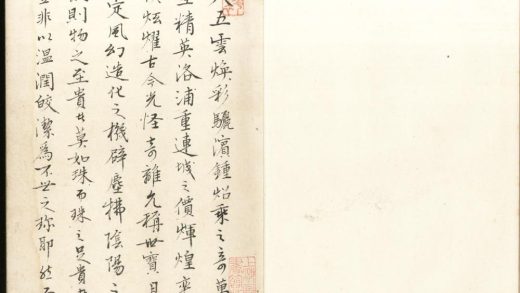 五雲煥彩驪濱鍾炤乘之奇萬
精英洛浦重連城之價輝煌奕
炫耀古今光怪奇離允稱世寶且
定風幻造化之機辟塵拂陰陽之
則物之至貴者莫如珠而珠之足貴
非以溫潤皎潔為不世之珍耶然